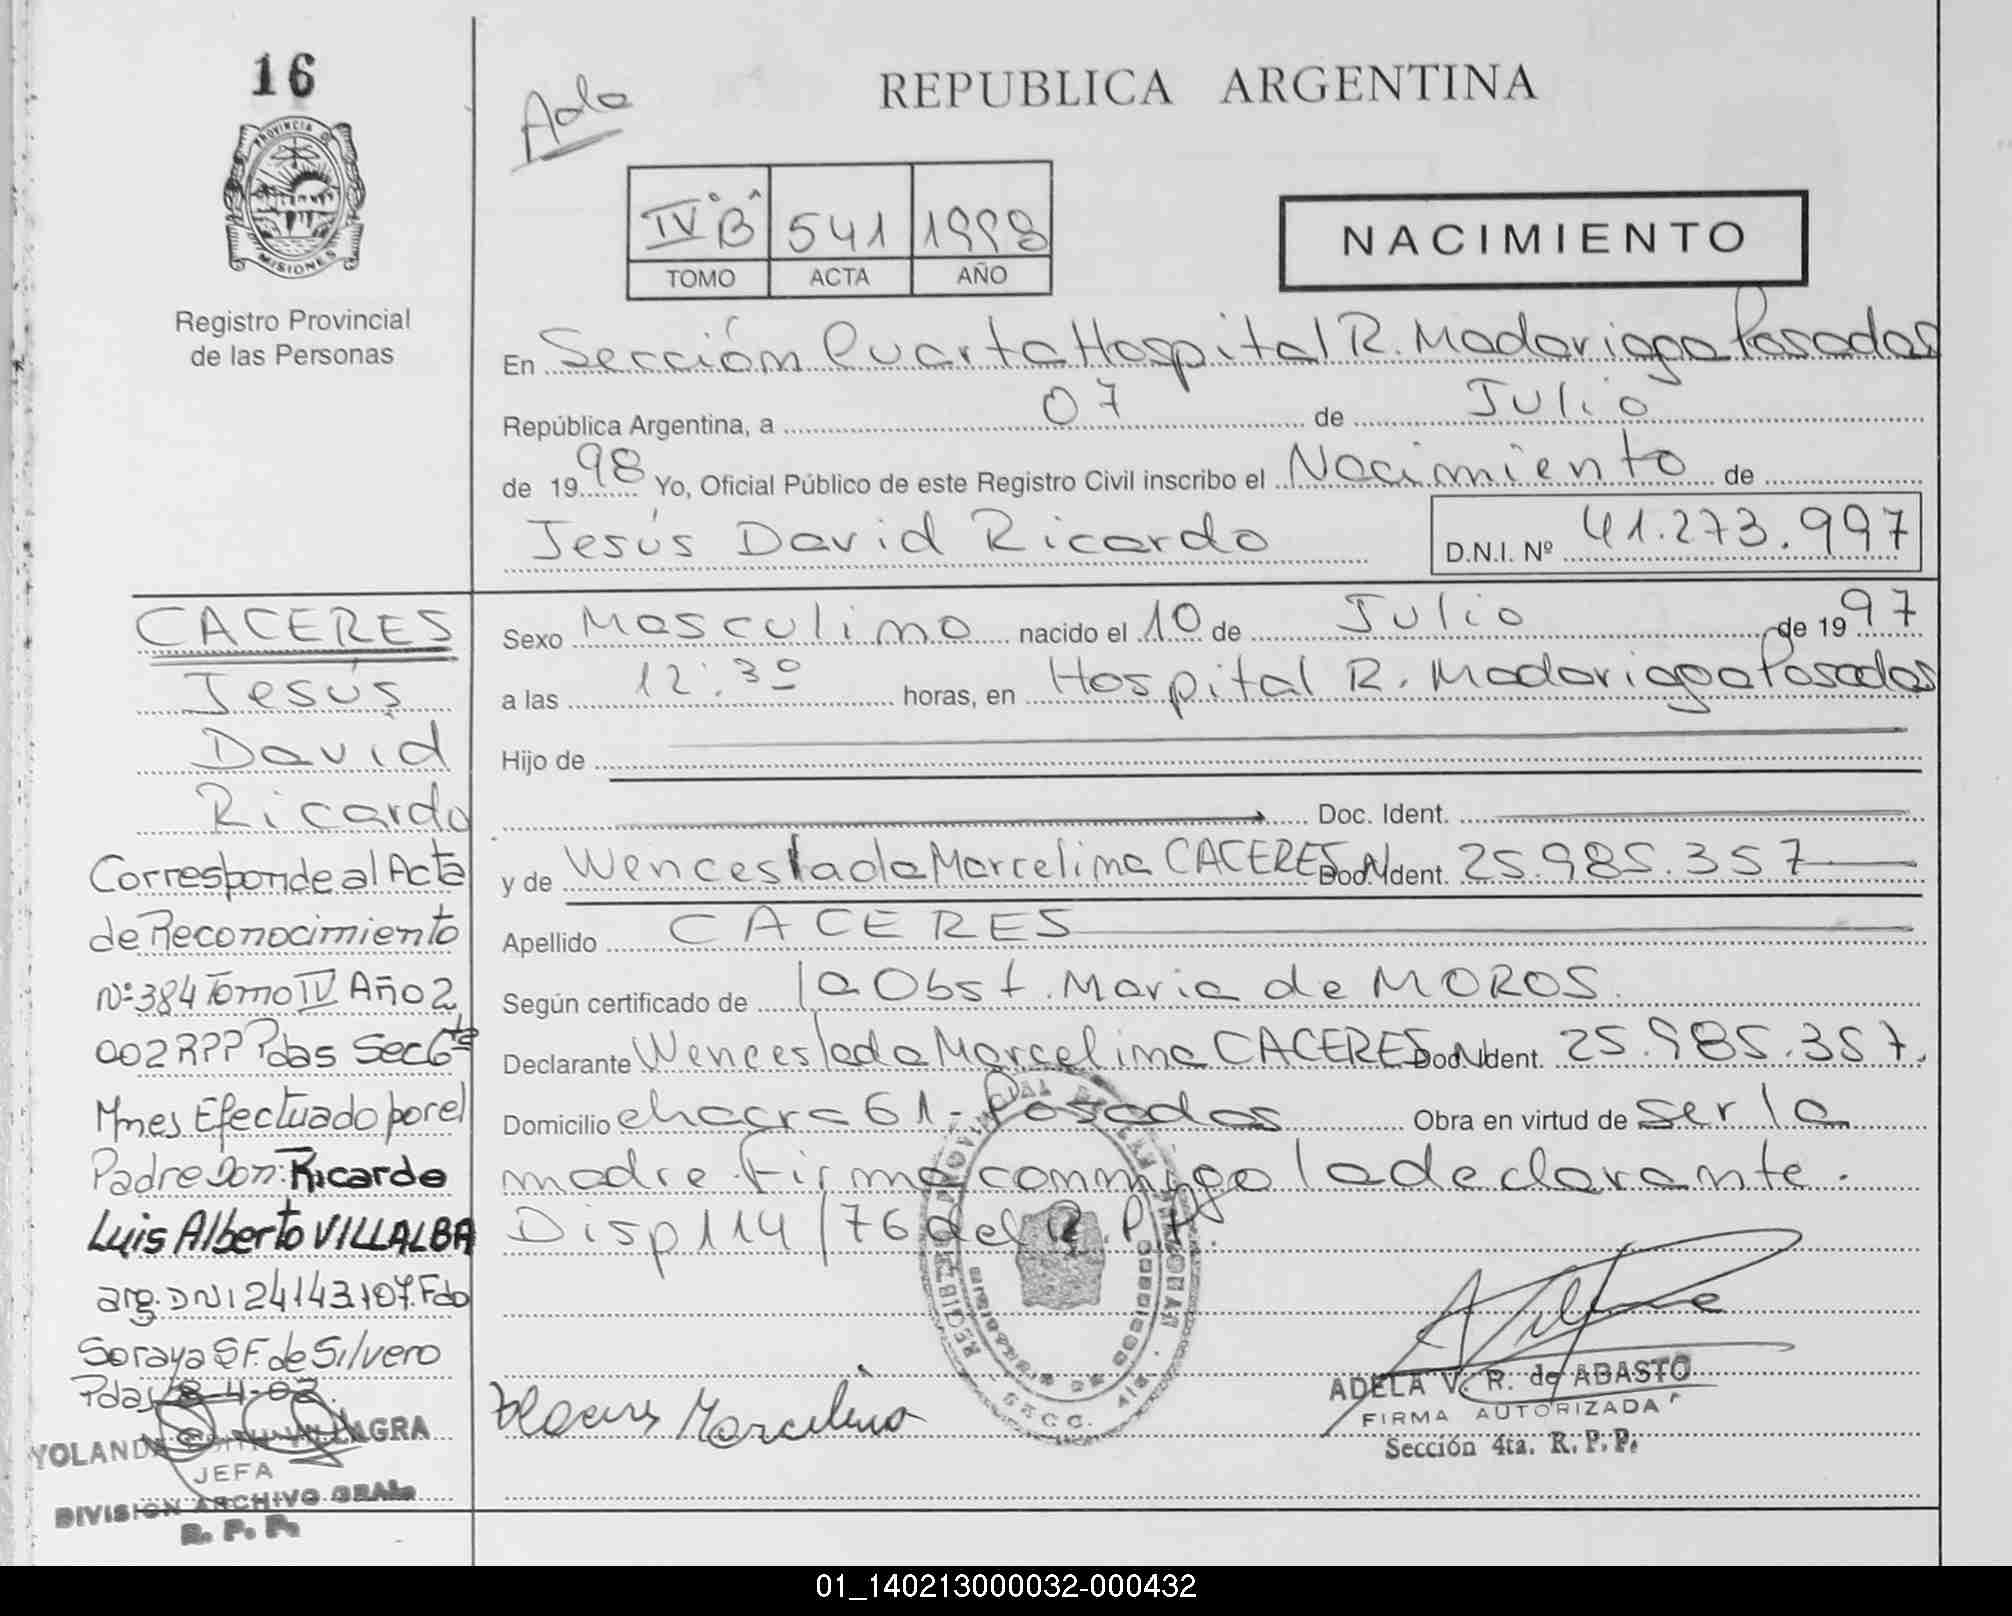 16
Adla
REPUBLICA ARGENTINA
PROVINCIA DE
MISIONES
Registro Provincial
de las Personas
IV "B" 541 1998
TOMO ACTA AÑO
NACIMIENTO
En Sección Cuarta Hospital R. Madariaga Posadas
República Argentina, a 07 de Julio
de 1998 Yo, Oficial Público de este Registro Civil inscribo el Nacimiento de
Jesús David Ricardo D.N.I. Nº 41.273.997
CACERES
Jesús
David
Ricardo
Corresponde al Acta
de Reconocimiento
Nº 384 Tomo IV Año 2
002 RPP Pdas Sec 6ta
Mnes Efectuado por el
Padre Don: Ricardo
Luis Alberto VILLALBA
arg. DNI 24143107. Fdo
Soraya S F. de Silvero
Pdas 8-4-02.
YOLANDA VILLAGRA
JEFA
DIVISION ARCHIVO GRAL.
R. P. P.
Sexo Masculino nacido el 10 de Julio de 1997
a las 12:30 horas, en Hospital R. Madariaga Posadas
Hijo de
Doc. Ident.
y de Wenceslada Marcelina CACERES DNI Doc. Ident. 25.985.357
Apellido CACERES
Según certificado de la Obst. Maria de MOROS.
Declarante Wenceslada Marcelina CACERES DNI Doc. Ident. 25.985.357.
Domicilio chacra 61 - Posadas Obra en virtud de ser la
madre. Firma conmigo la declarante.
Disp 114/76 del R.P.P.
Marcelina
ADELA V. R. de ABASTO
FIRMA AUTORIZADA
Sección 4ta. R. P. P.
01_140213000032-000432